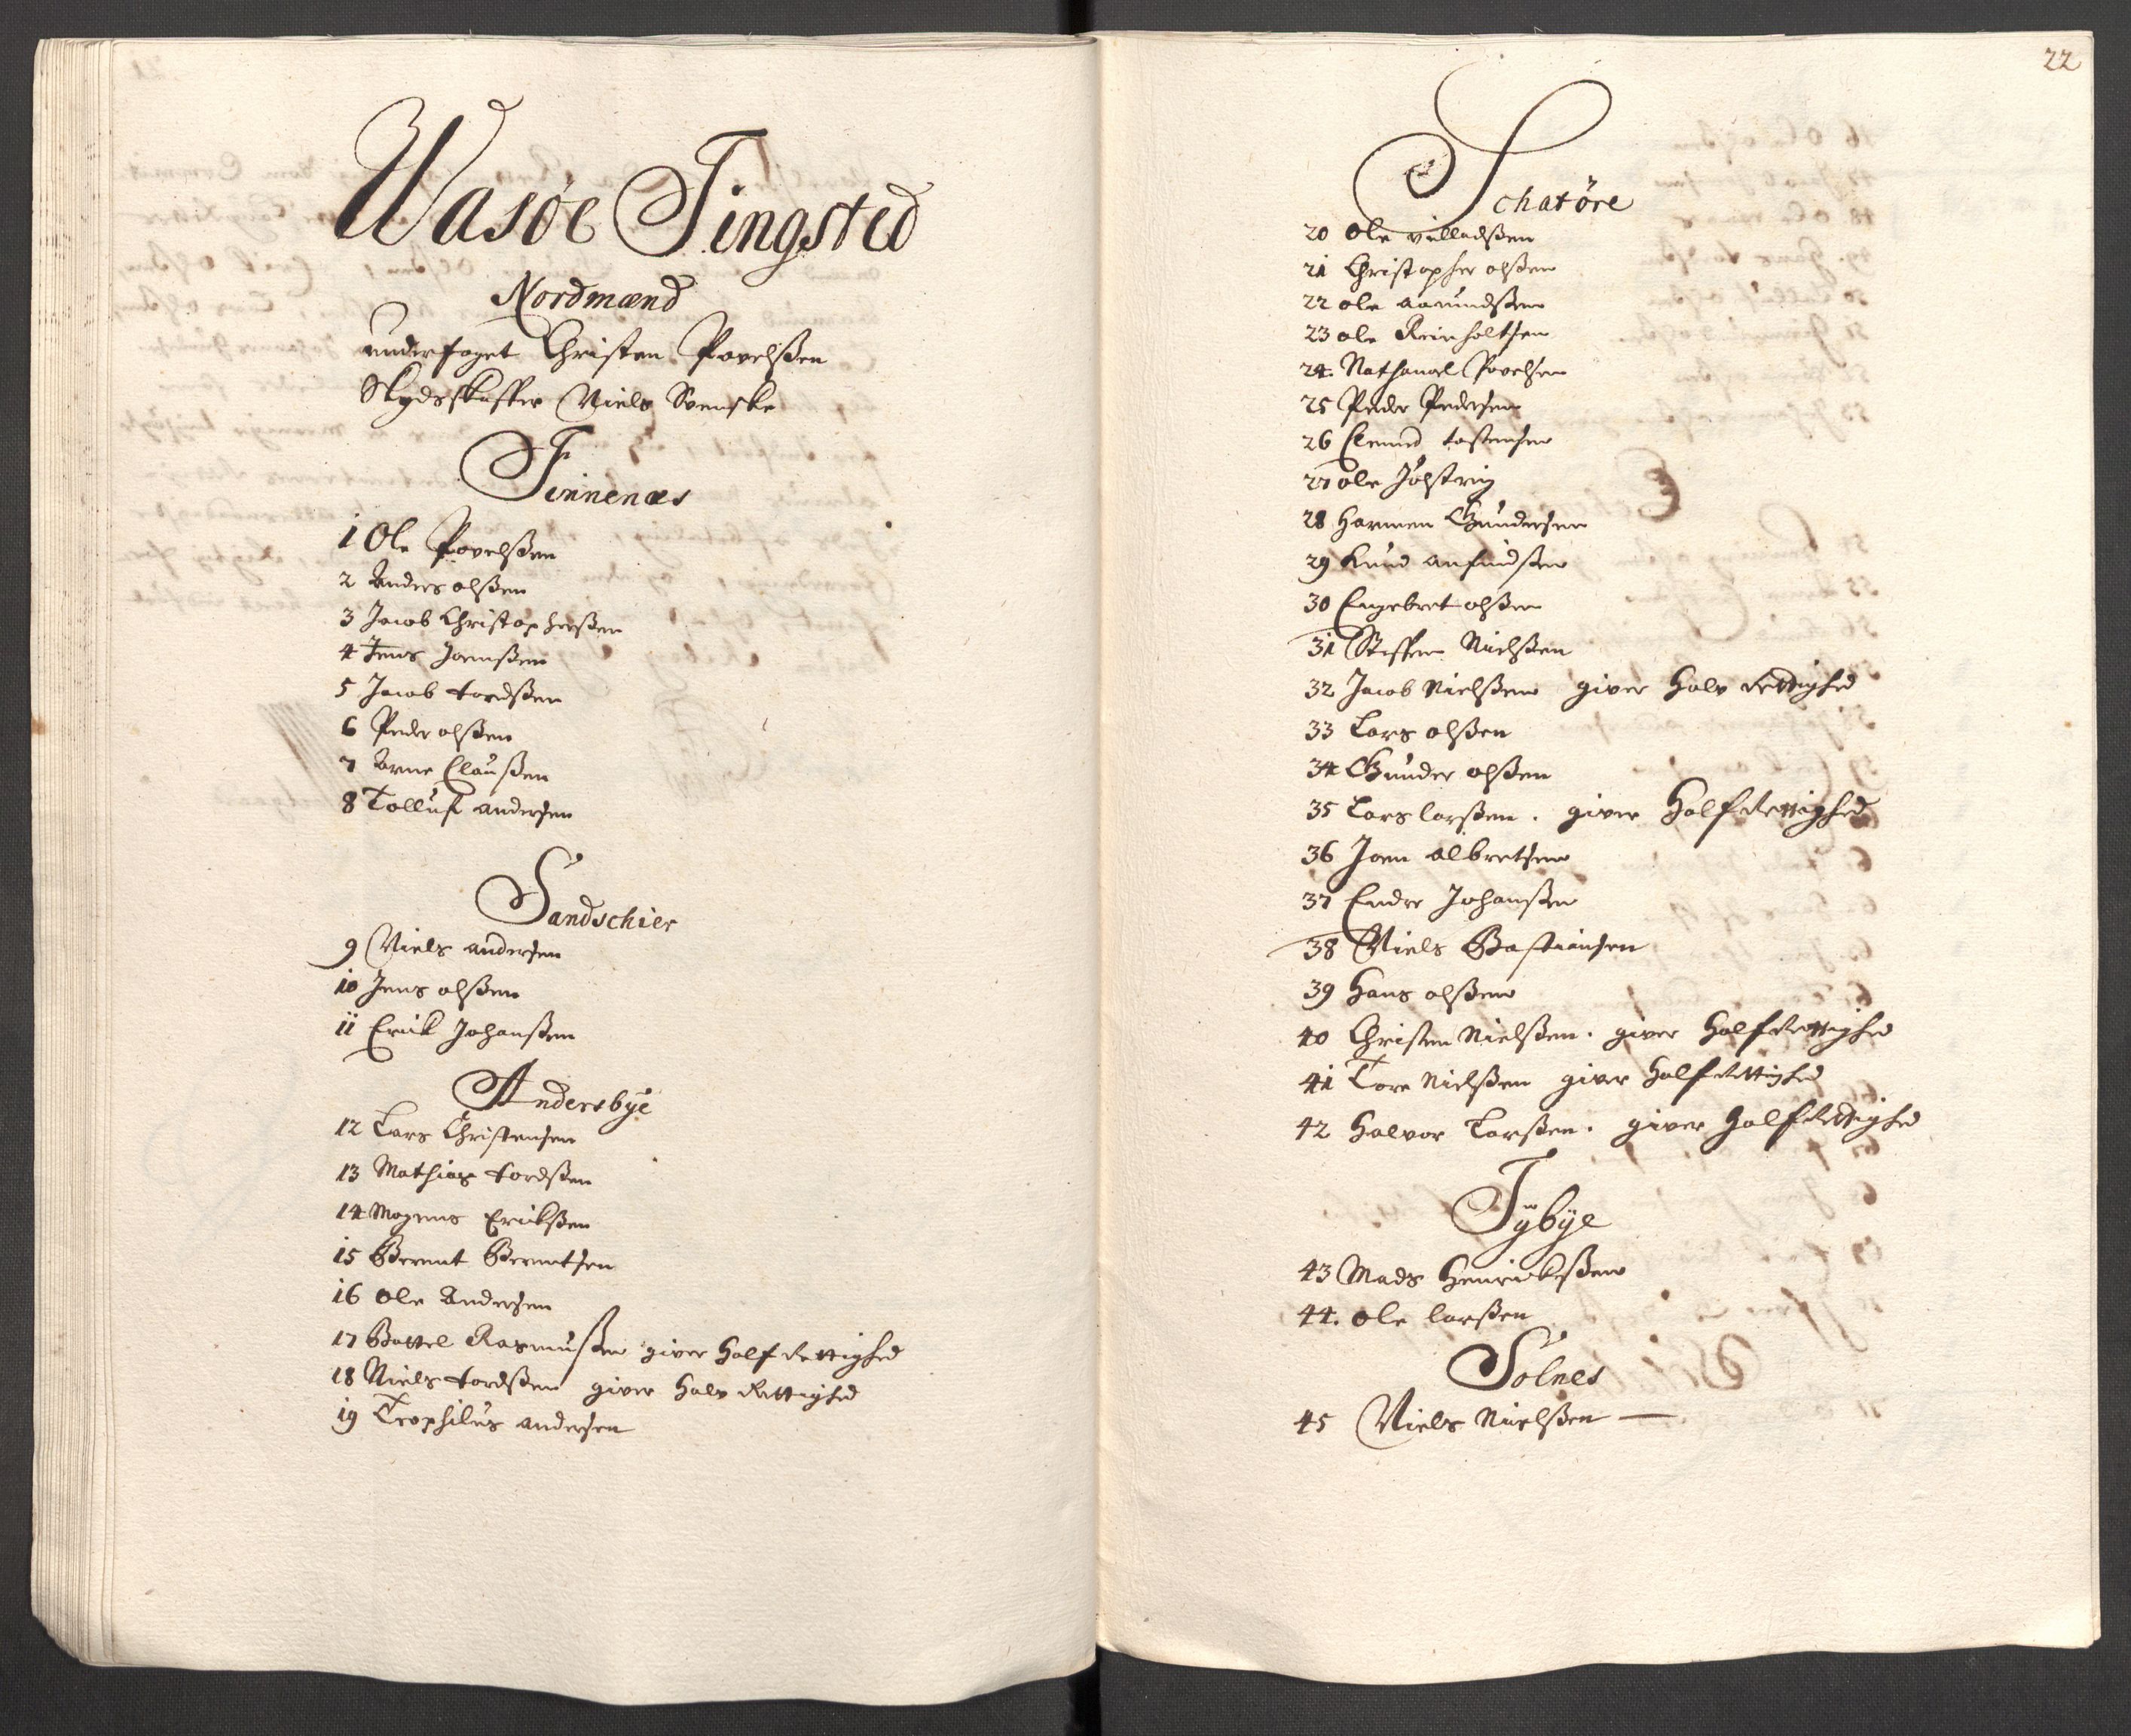 Wasöe Tingsted
Nordmænd
underfoget Christen Povelßen
Skydsskaffer Niels Svenske
Finnenæs
1 Ole Povelßen
2 Anders olßen
3 Jacob Christopherßen
4 Jens Joenßen
5 Jacob tordßen
6 Peder olßen
7 Arne Claußen
8 Tolluf andersen
Sandschier
9 Niels andersen
10 Jens olßen
11 Erick Johanßen
Andersbÿe
12 Lars Christensen
13 Mathias tordßen
14 Mogens Erickßen
15 Berent Berentsen
16 Ole Andersen
17 Battel Rasmußen giver Half Rettighed
18 Niels tordßen giver Halv Rettighed
19 Teophilus andersen
22
Schatöre
20 Ole villadßen
21 Christopher olßen
22 ole aamundßen
23 ole Reinholtsen
24. Nathanael Povelsen
25 Peder Pedersen
26 Elemed tostensen
27 ole Jölstring
28 Harmen Gundersen
29 Knud anfindßen
30 Engebret olßen
31 Steffen Nielßen
32 Jacob Nielßen giver Halv Rettighed
33 Lars olßen
34 Gunder olßen
35 Lars larßen. giver Half Rettighed
36 Joen albretsen
37 Endre Johanßen
38 Niels Bastiansen
39 Hans olßen
40 Christen Nielßen. giver Half Rettighed
41 Tore Nielßen giver Half Rettighed
42 Halvor Larßen. giver Half Rettighed
Tÿbÿe
43 Mads Henrickßen
44. ole larßen
Solnes
45 Niels Nielßen